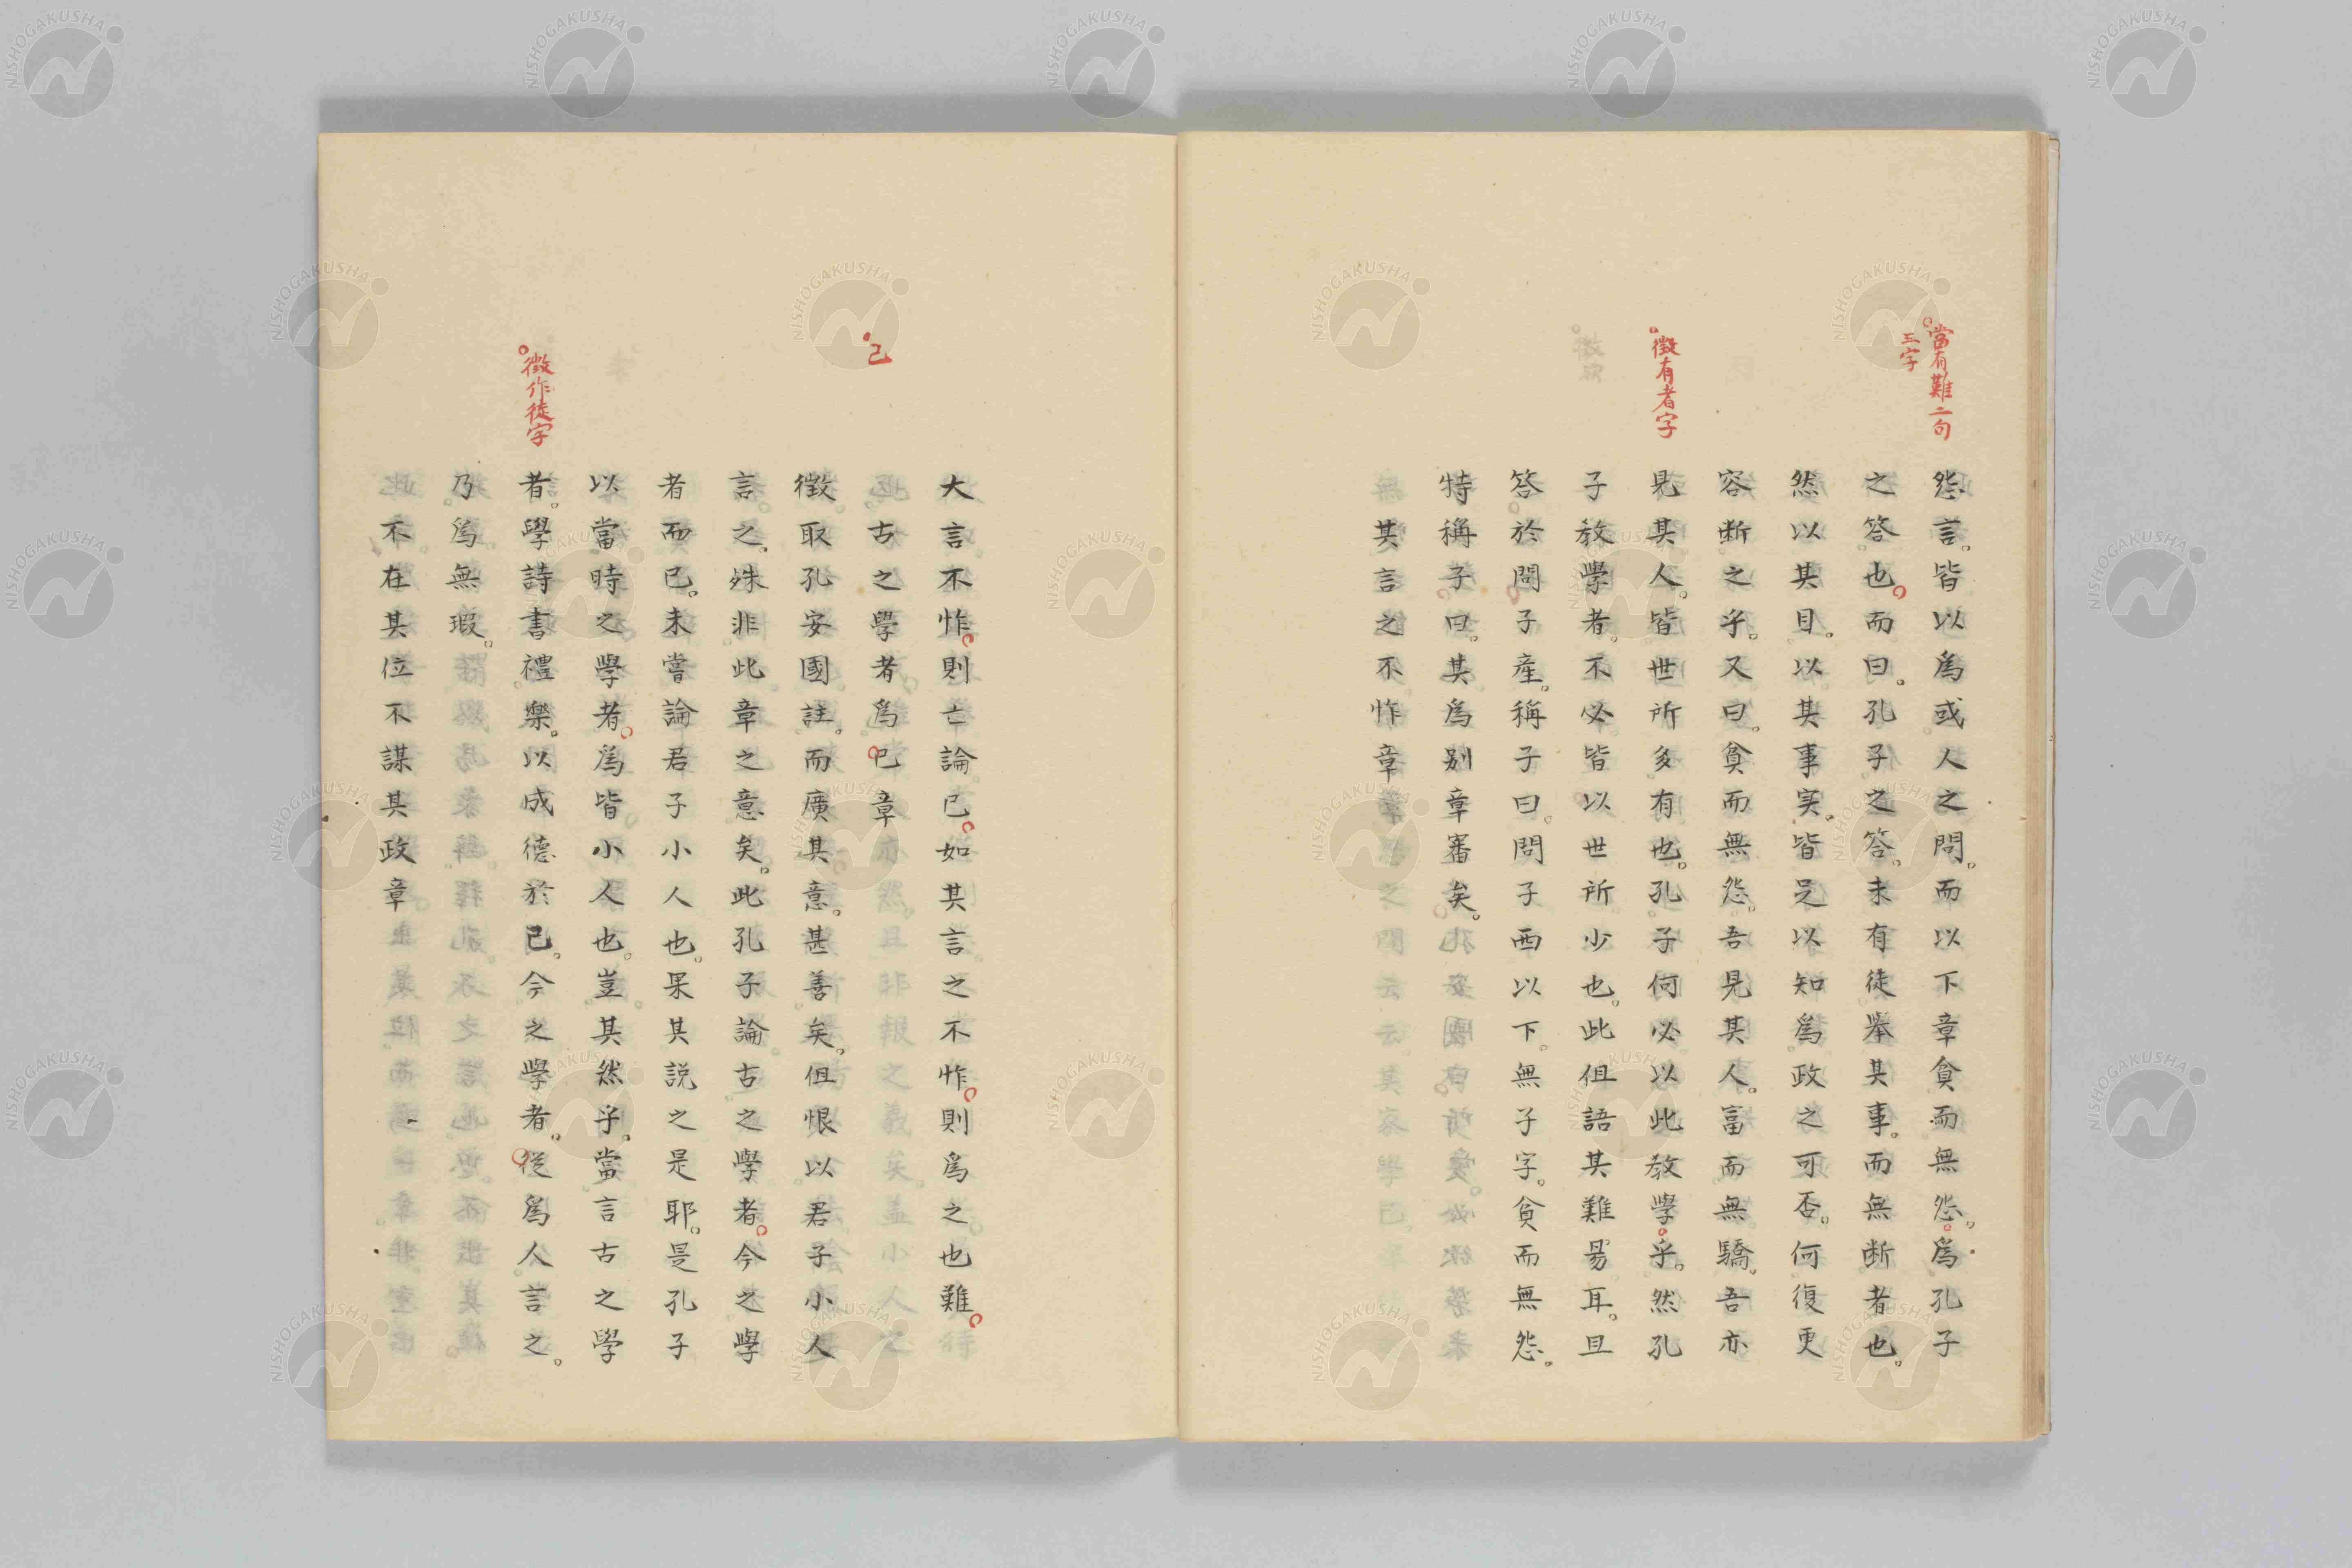 當有難二句
三字
徵有者字
怨言。皆以為或人之問。而以下章貧而無怨。為孔子
之答也。而曰。孔子之答。未有徒舉其事。而無斷者也。
然以其目。以其事実。皆足以知為政之可否。何復更
容断之乎。又曰。貧而無怨。吾見其人。富而無驕。吾亦
見其人。皆世所多有也。孔子何必以此教學乎。然孔
子教學者。不必皆以世所少也。此但語其難易耳。且
答於問子產。稱子曰。問子西以下。無子字。貧而無怨。
特稱子曰。其為別章審矣。
其言之不怍章
己
徵作徒字
大言不怍。則亡論已。如其言之不怍。則為之也難。
古之學者為已章
徵。取孔安國註。而廣其意。甚善矣。但恨以君子小人
言之。殊非此章之意矣。此孔子論古之學者。今之學
者而已。未嘗論君子小人也。果其説之是耶。是孔子
以當時之學者。為皆小人也。豈其然乎。當言古之學
者。學詩書禮樂。以成德於己。今之學者。從為人言之。
乃為無瑕。
不在其位不謀其政章
NISHOGAKUSHA